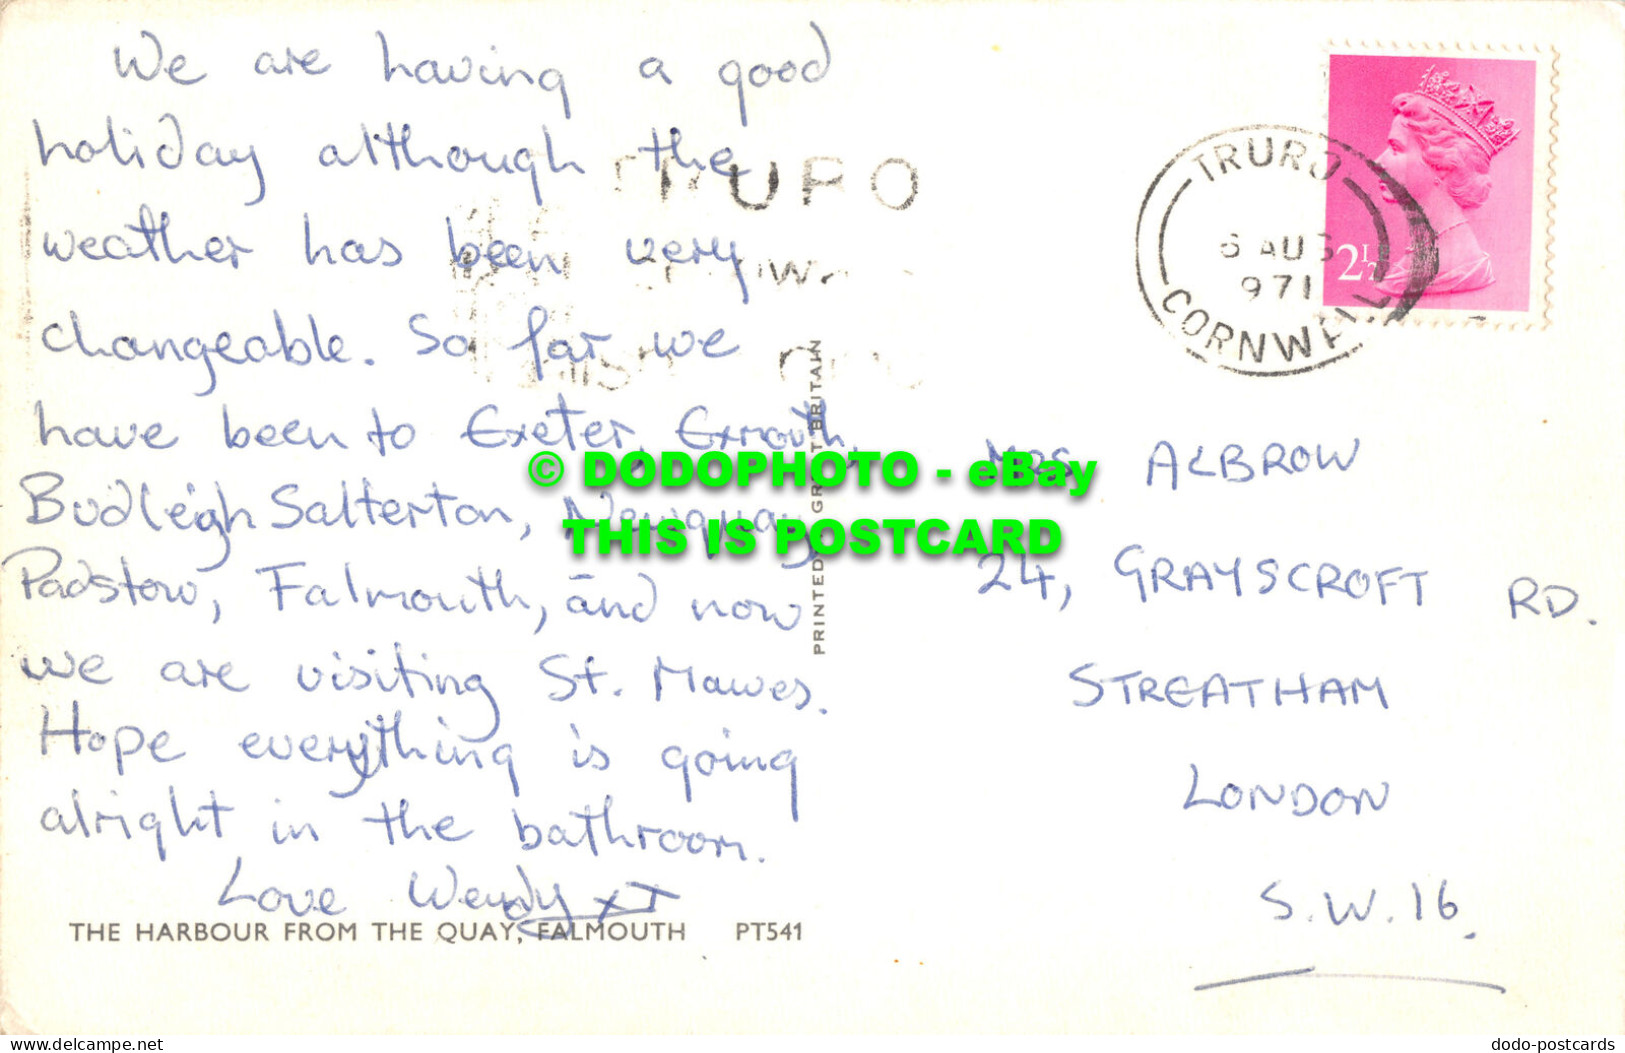 We are having a good
holiday although the
weather has been very
changeable. So far we
have been to Exeter, Exmouth,
Budleigh Salterton, Newquay,
Padstow, Falmouth, and now
we are visiting St. Mawes.
Hope everything is going
alright in the bathroom.
Love Wendy
THE HARBOUR FROM THE QUAY, FALMOUTH PT541
TRURO
PRINTED IN GREAT BRITAIN
TRURO
6 AUG
971
CORNWALL
2½
MRS ALBROW
24, GRAYSCROFT RD.
STREATHAM
LONDON
S.W.16.
© DODOPHOTO - eBay
THIS IS POSTCARD
www.delcampe.net
dodo-postcards